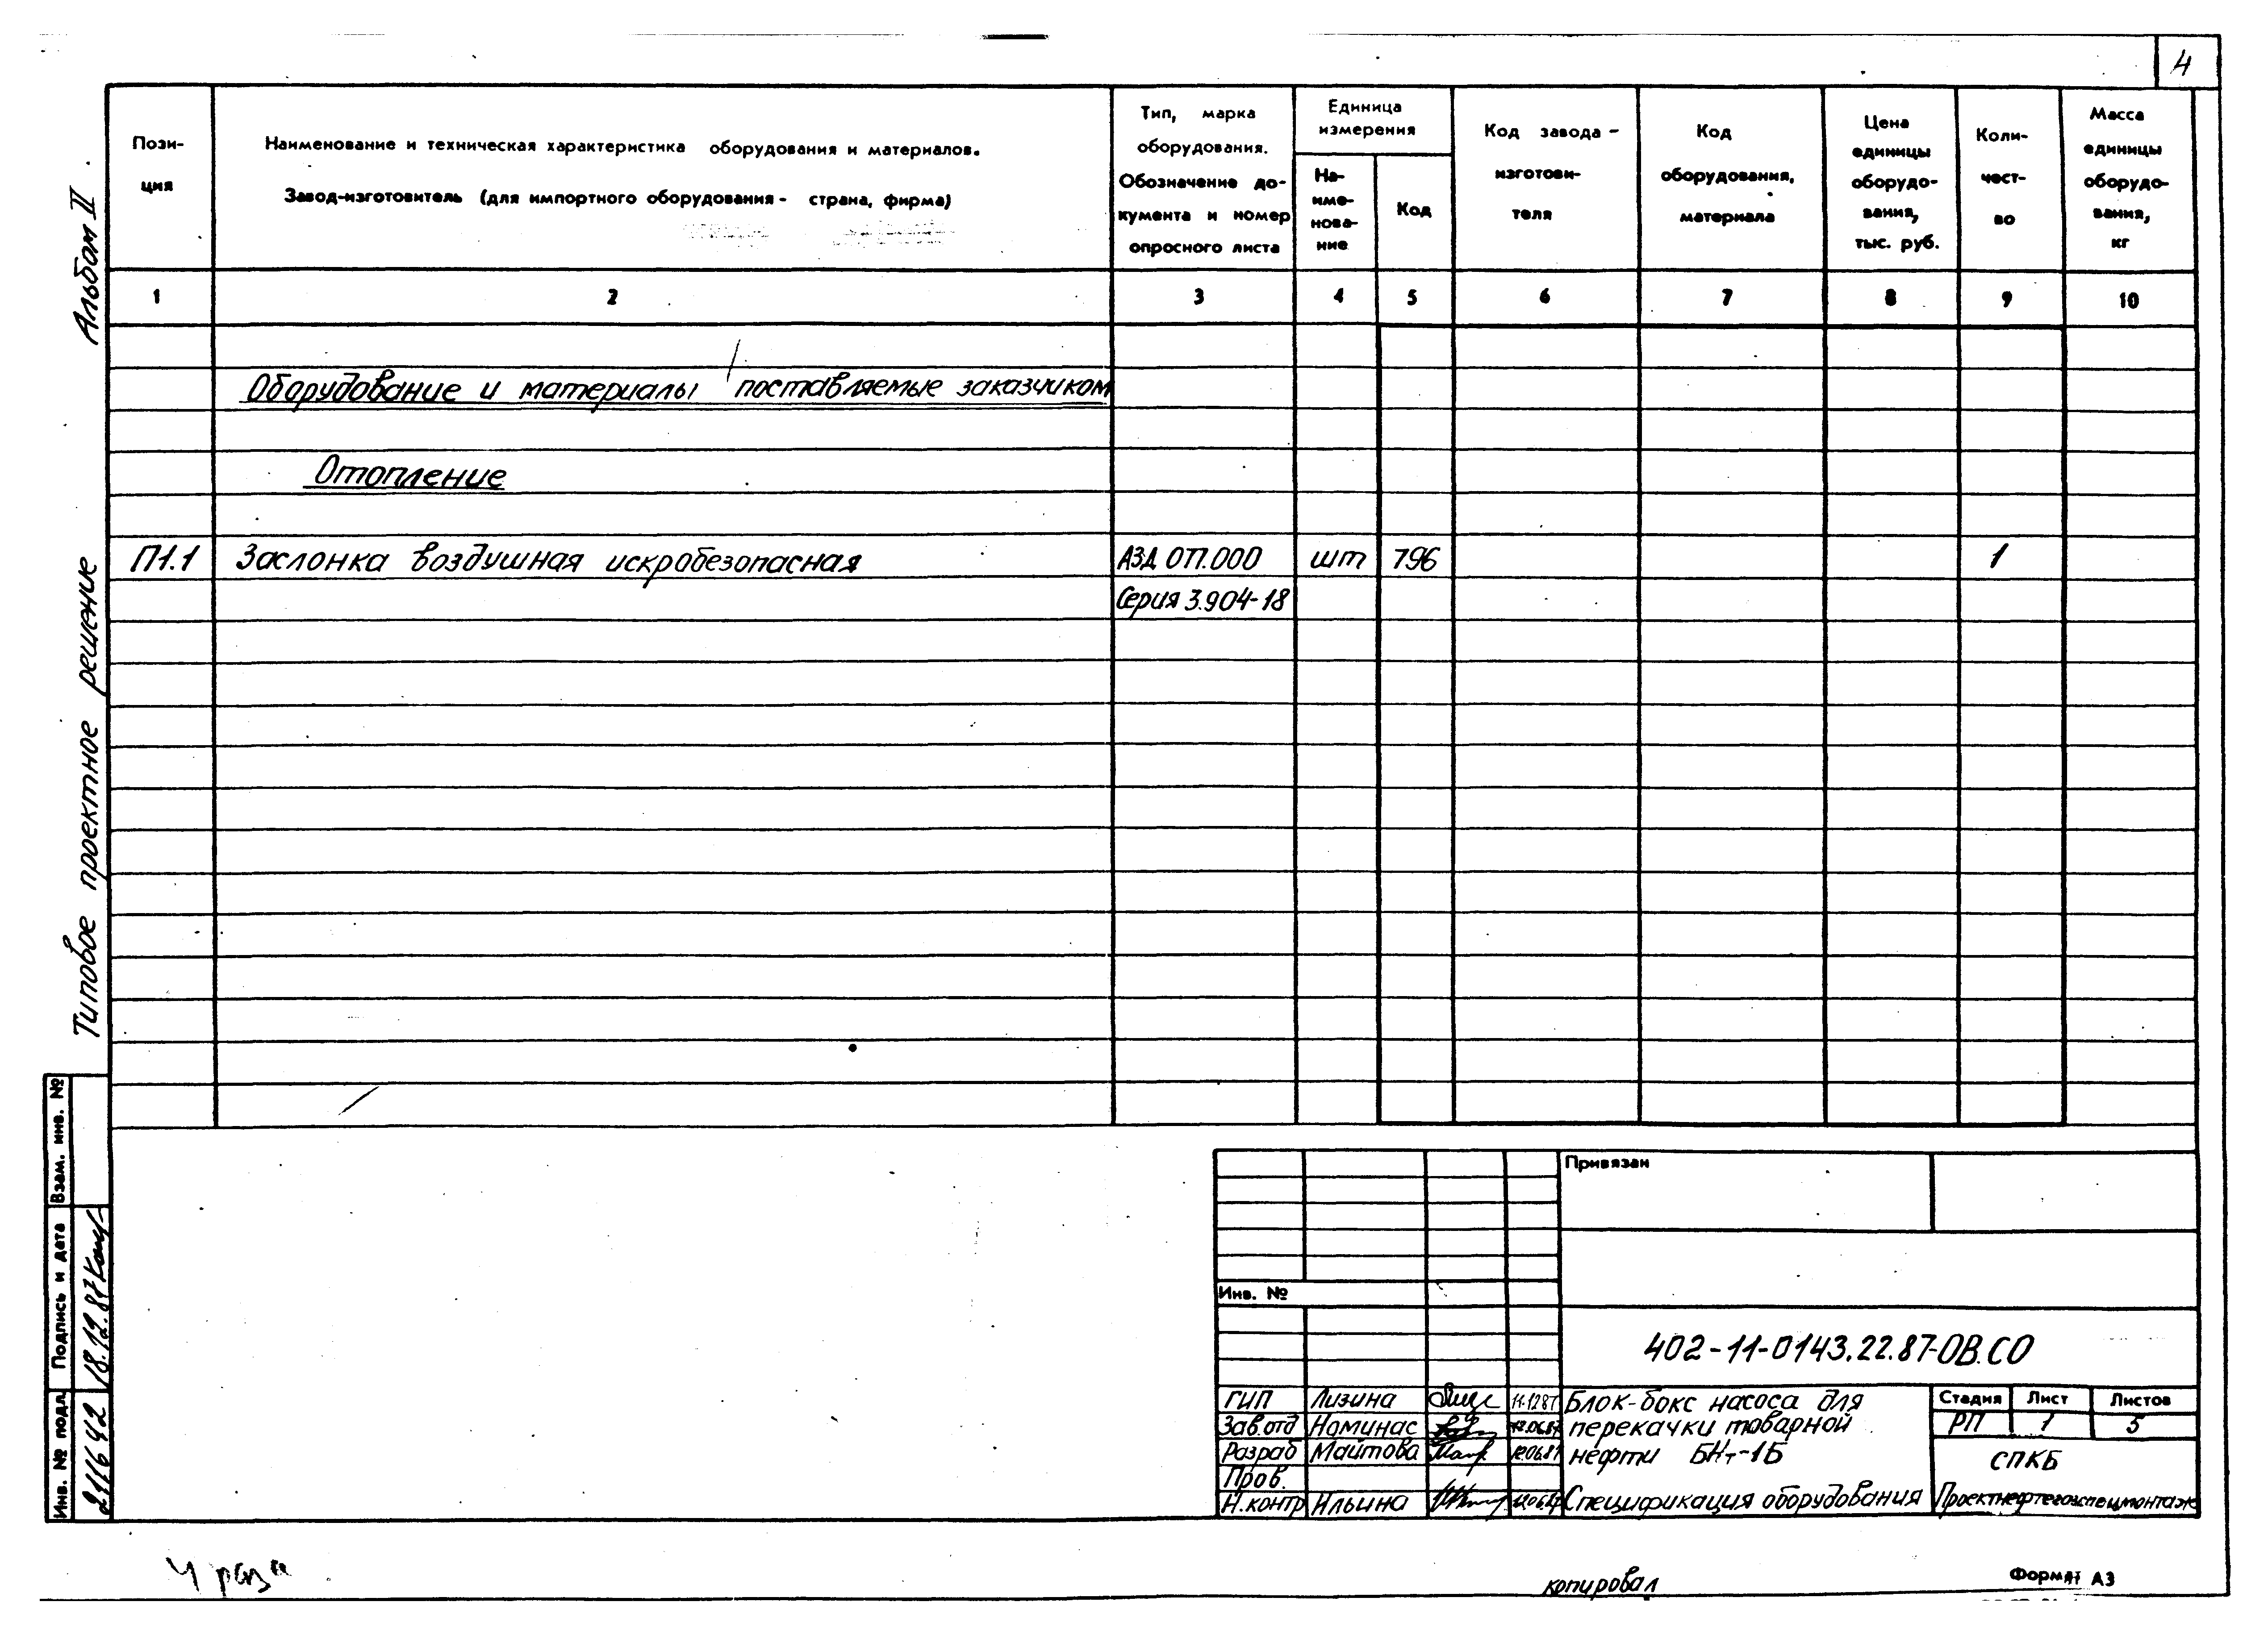 4
Альбом II
Типовое проектное решение
Пози-
ция
Наименование и техническая характеристика оборудования и материалов.
Завод-изготовитель (для импортного оборудования - страна, фирма)
Тип, марка
оборудования.
Обозначение до-
кумента и номер
опросного листа
Единица
измерения
На-
име-
нова-
ние
Код
Код завода -
изготови-
теля
Код
оборудования,
материала
Цена
единицы
оборудо-
вания,
тыс. руб.
Коли-
чест-
во
Масса
единицы
оборудо-
вания,
кг
1 2 3 4 5 6 7 8 9 10
Оборудование и материалы поставляемые заказчиком
Отопление
П1.1 Заслонка воздушная искробезопасная АЗД 0П.000 шт 796 1
Серия 3.904-18
Взам. инв. №
Подпись и дата
18.12.87
Инв. № подл
211642
Привязан
Инв. №
402-11-0143.22.87-ОВ.СО
ГИП Лизина
Зав.отд Номинас
Разраб Майтова
Пров.
Н.контр Ильина
Блок-бокс насоса для
перекачки товарной
нефти БНт-1Б
Спецификация оборудования
Стадия Лист Листов
РП 1 5
СПКБ
Проектнефтегазспецмонтаж
4 раза
копировал
Формат А3